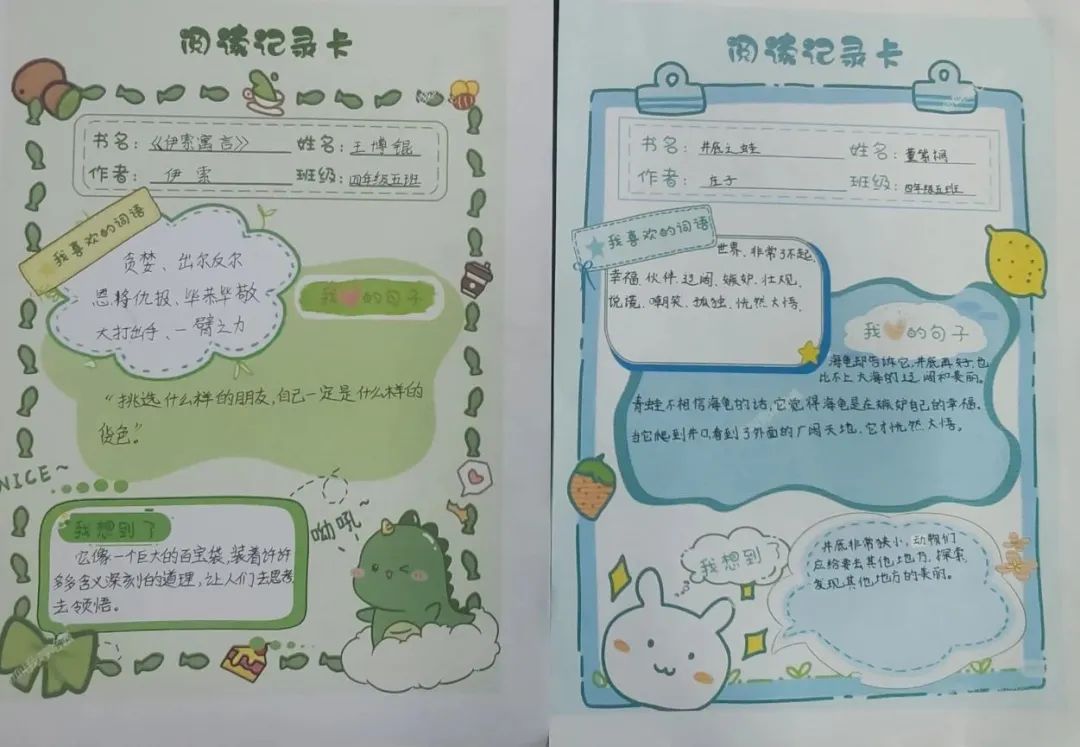 阅读记录卡
书名：《伊索寓言》 姓名：王博锟
作者：伊索 班级：四年级五班
我喜欢的词语
贪婪、出尔反尔
恩将仇报、毕恭毕敬
大打出手、一臂之力
我的句子
“挑选什么样的朋友,自己一定是什么样的
货色。”
NICE~
我想到了
它像一个巨大的百宝袋,装着许许
多多含义深刻的道理,让人们去思考
去领悟。
呦吼~
阅读记录卡
书名：井底之蛙 姓名：董
作者：庄子 班级：四年级五班
我喜欢的词语
世界、非常了不起、
幸福、伙伴、辽阔、嫉妒、壮观、
说谎、嘲笑、孤独、恍然大悟.
我的句子
海龟却告诉它,井底再好,也
比不上大海的辽阔和美丽。
青蛙不相信海龟的话,它觉得海龟是在嫉妒自己的幸福.
当它爬到井口,看到了外面的广阔天地,它才恍然大悟。
我想到了
井底非常狭小,动物们
应给要去其他地方,探索,
发现其他地方的美丽。